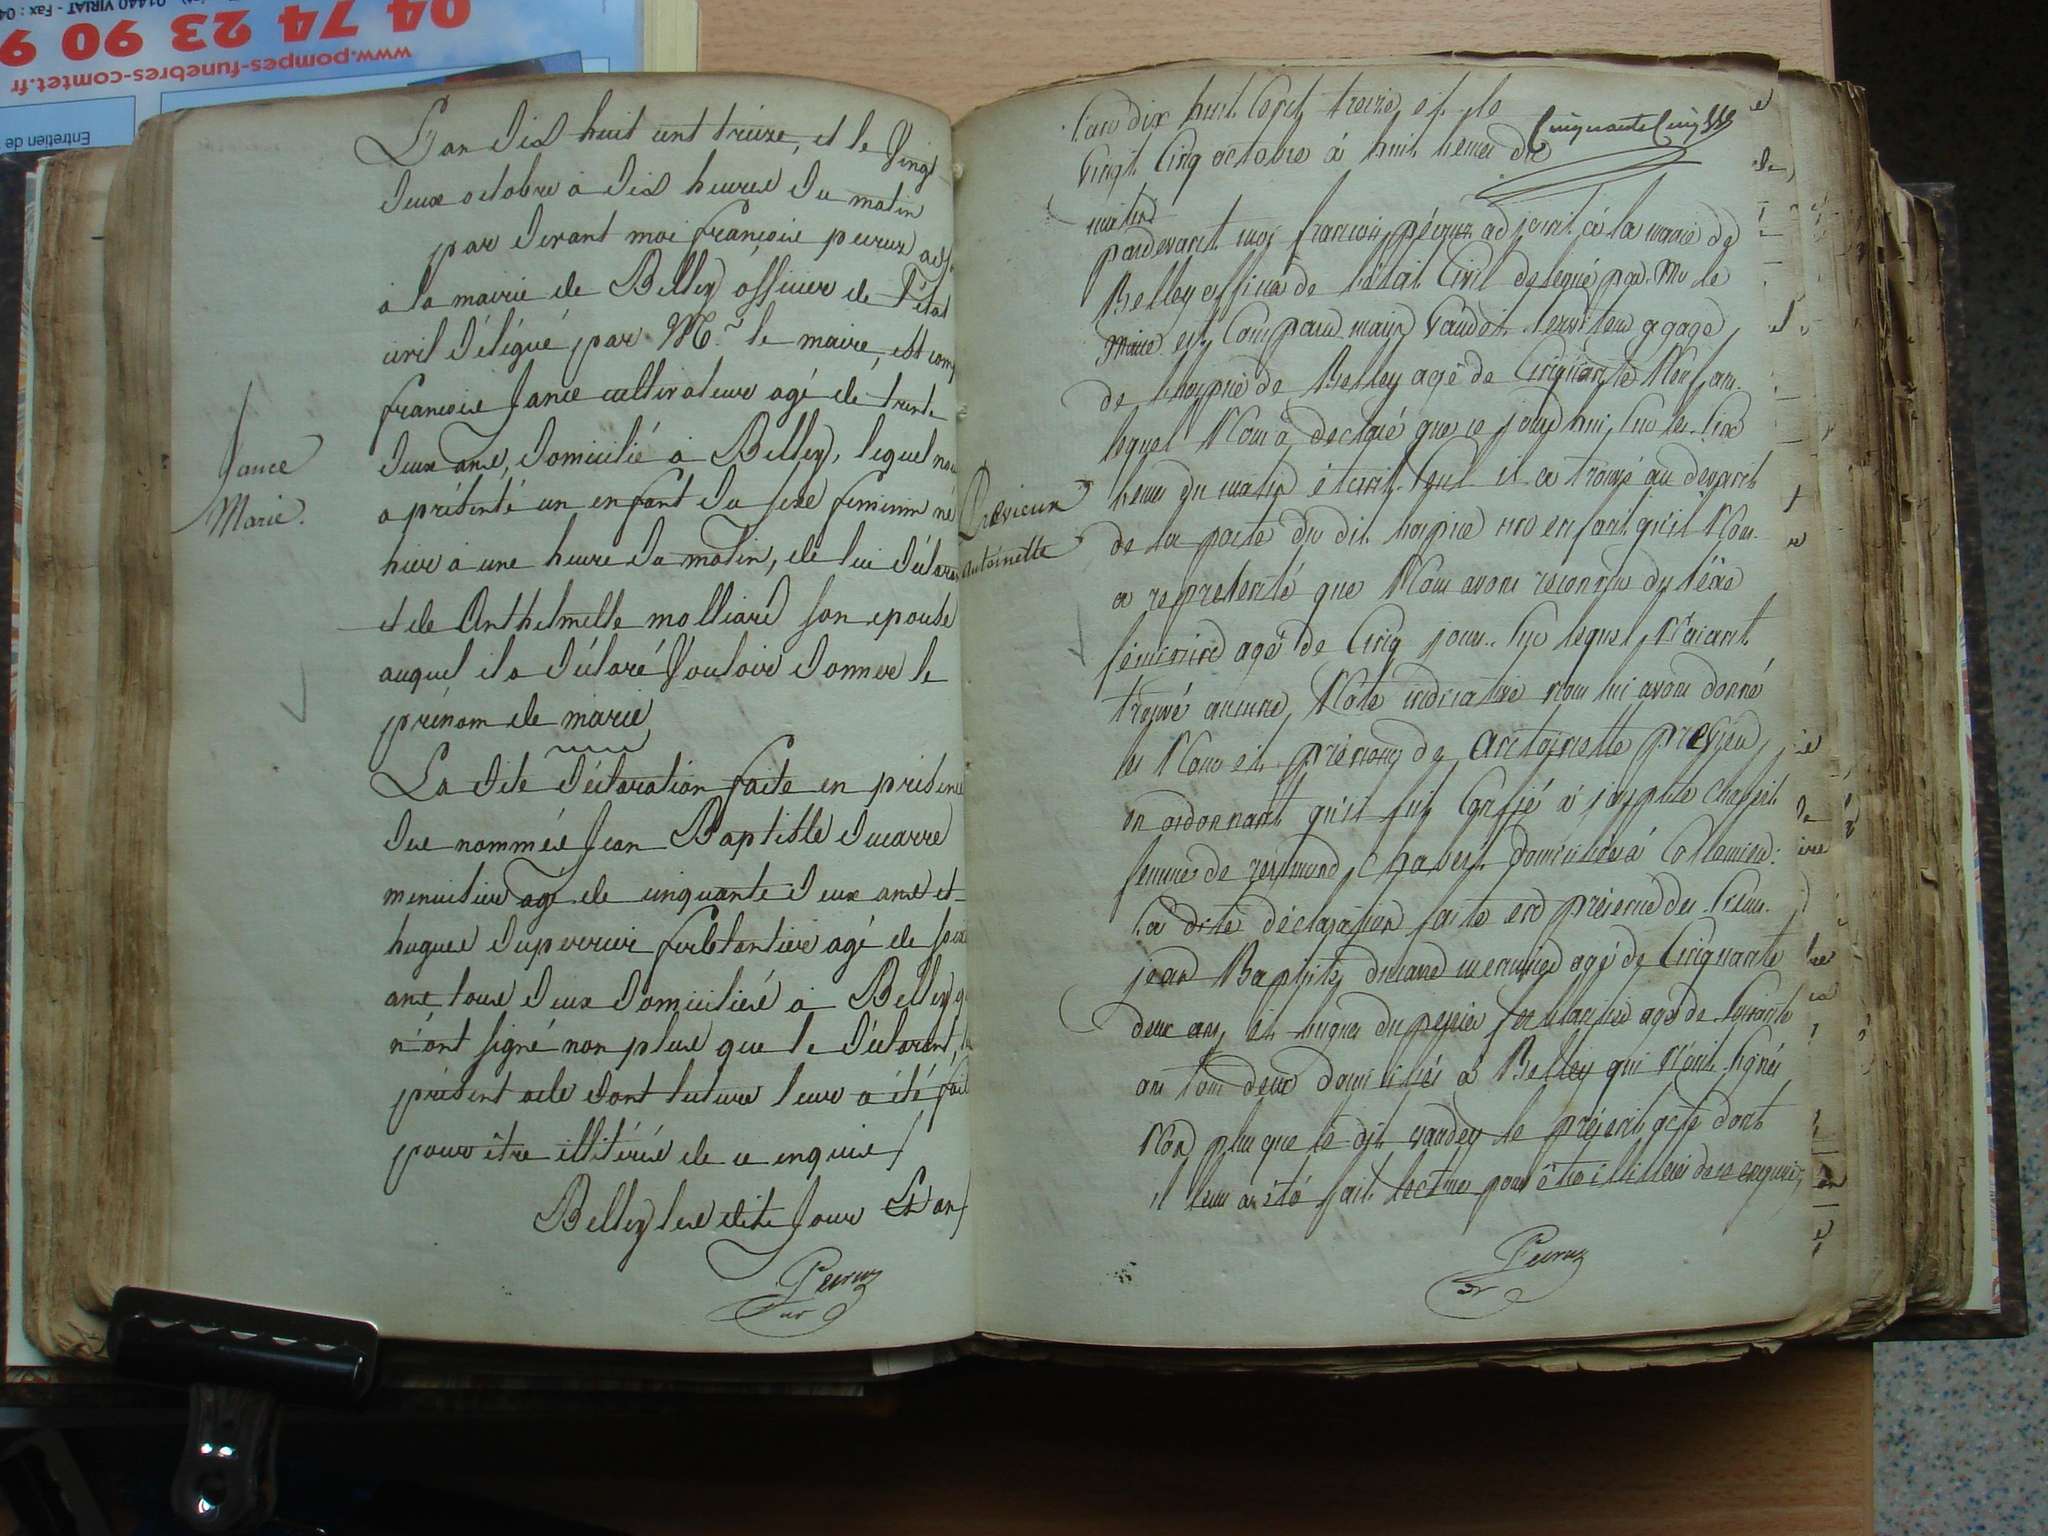 04 74 23 90 9
www.pompes-funebres-comtet.fr
01440 VIRIAT - Fax : 04
Entretien de
L'an Dix huit cent treize, et le Vingt
Deux octobre à Dix heures Du matin
par devant moi françois peirux adj
a la mairie de Belley officier de L'état
civil Délégué par Mr le maire, est comp
françois Jance cultivateur agé de trente
Deux ans, Domicilié à Belley, lequel nous
a présenté un enfant Du sexe feminin né
hier à une heure Du matin, de lui Déclarant
et de Anthelmette molliard son epouse
auquel il a Déclaré Vouloir Donner le
prénom de marie
La Dite Déclaration faite en présence
Des nommés Jean Baptiste Ducarre
menuisier agé de cinquante Deux ans et
hugues Duperrier ferblantier agé de soix
ans tous Deux Domiciliés à Belley q
n'ont signé non plus que le Déclarant, le
présent acte dont lecture leur a été fait
pour être illitérés de ce enquis
Belley les dits Jour & an
Peirux
Jance
Marie.
Cinquante Cinq
L'an dix huit Cent treize, et le
Vingt Cinq octobre à huit heures du
matin
pardevant moi francois peirux adjoint à la mairie de
Belley officier de l'état Civil délégué par Mr le
Maire est Comparu Vaudey serviteur a gage
de l'hospice de Belley agé de Cinquante Neuf ans
lequel Nous a declaré que ce jourd'hui sur les six
heures du matin étant seul il a trouvé au devant
de la porte du dit hospice un enfant qu'il Nous
a representé que Nous avons reconnu du sexe
féminin agé de Cinq jours sur lequel N'aiant
trouvé aucune Note indicative nous lui avons donné
les Nom et prénom de Antoinette previeu
en ordonnant qu'il fut Confié à
femme de domiciliée à
La dite déclaration faite en présence des sieurs
jean Baptiste ducarre menuisier agé de Cinquante
deux ans et hugues duperrier ferblantier agé de soixante
ans tous deux domiciliés à Belley qui N'ont signés
Non plus que le dit vaudey le présent acte dont
il leur a été fait lecture pour être illiterés de ce enquis
Peirux
Previeux
Antoinette